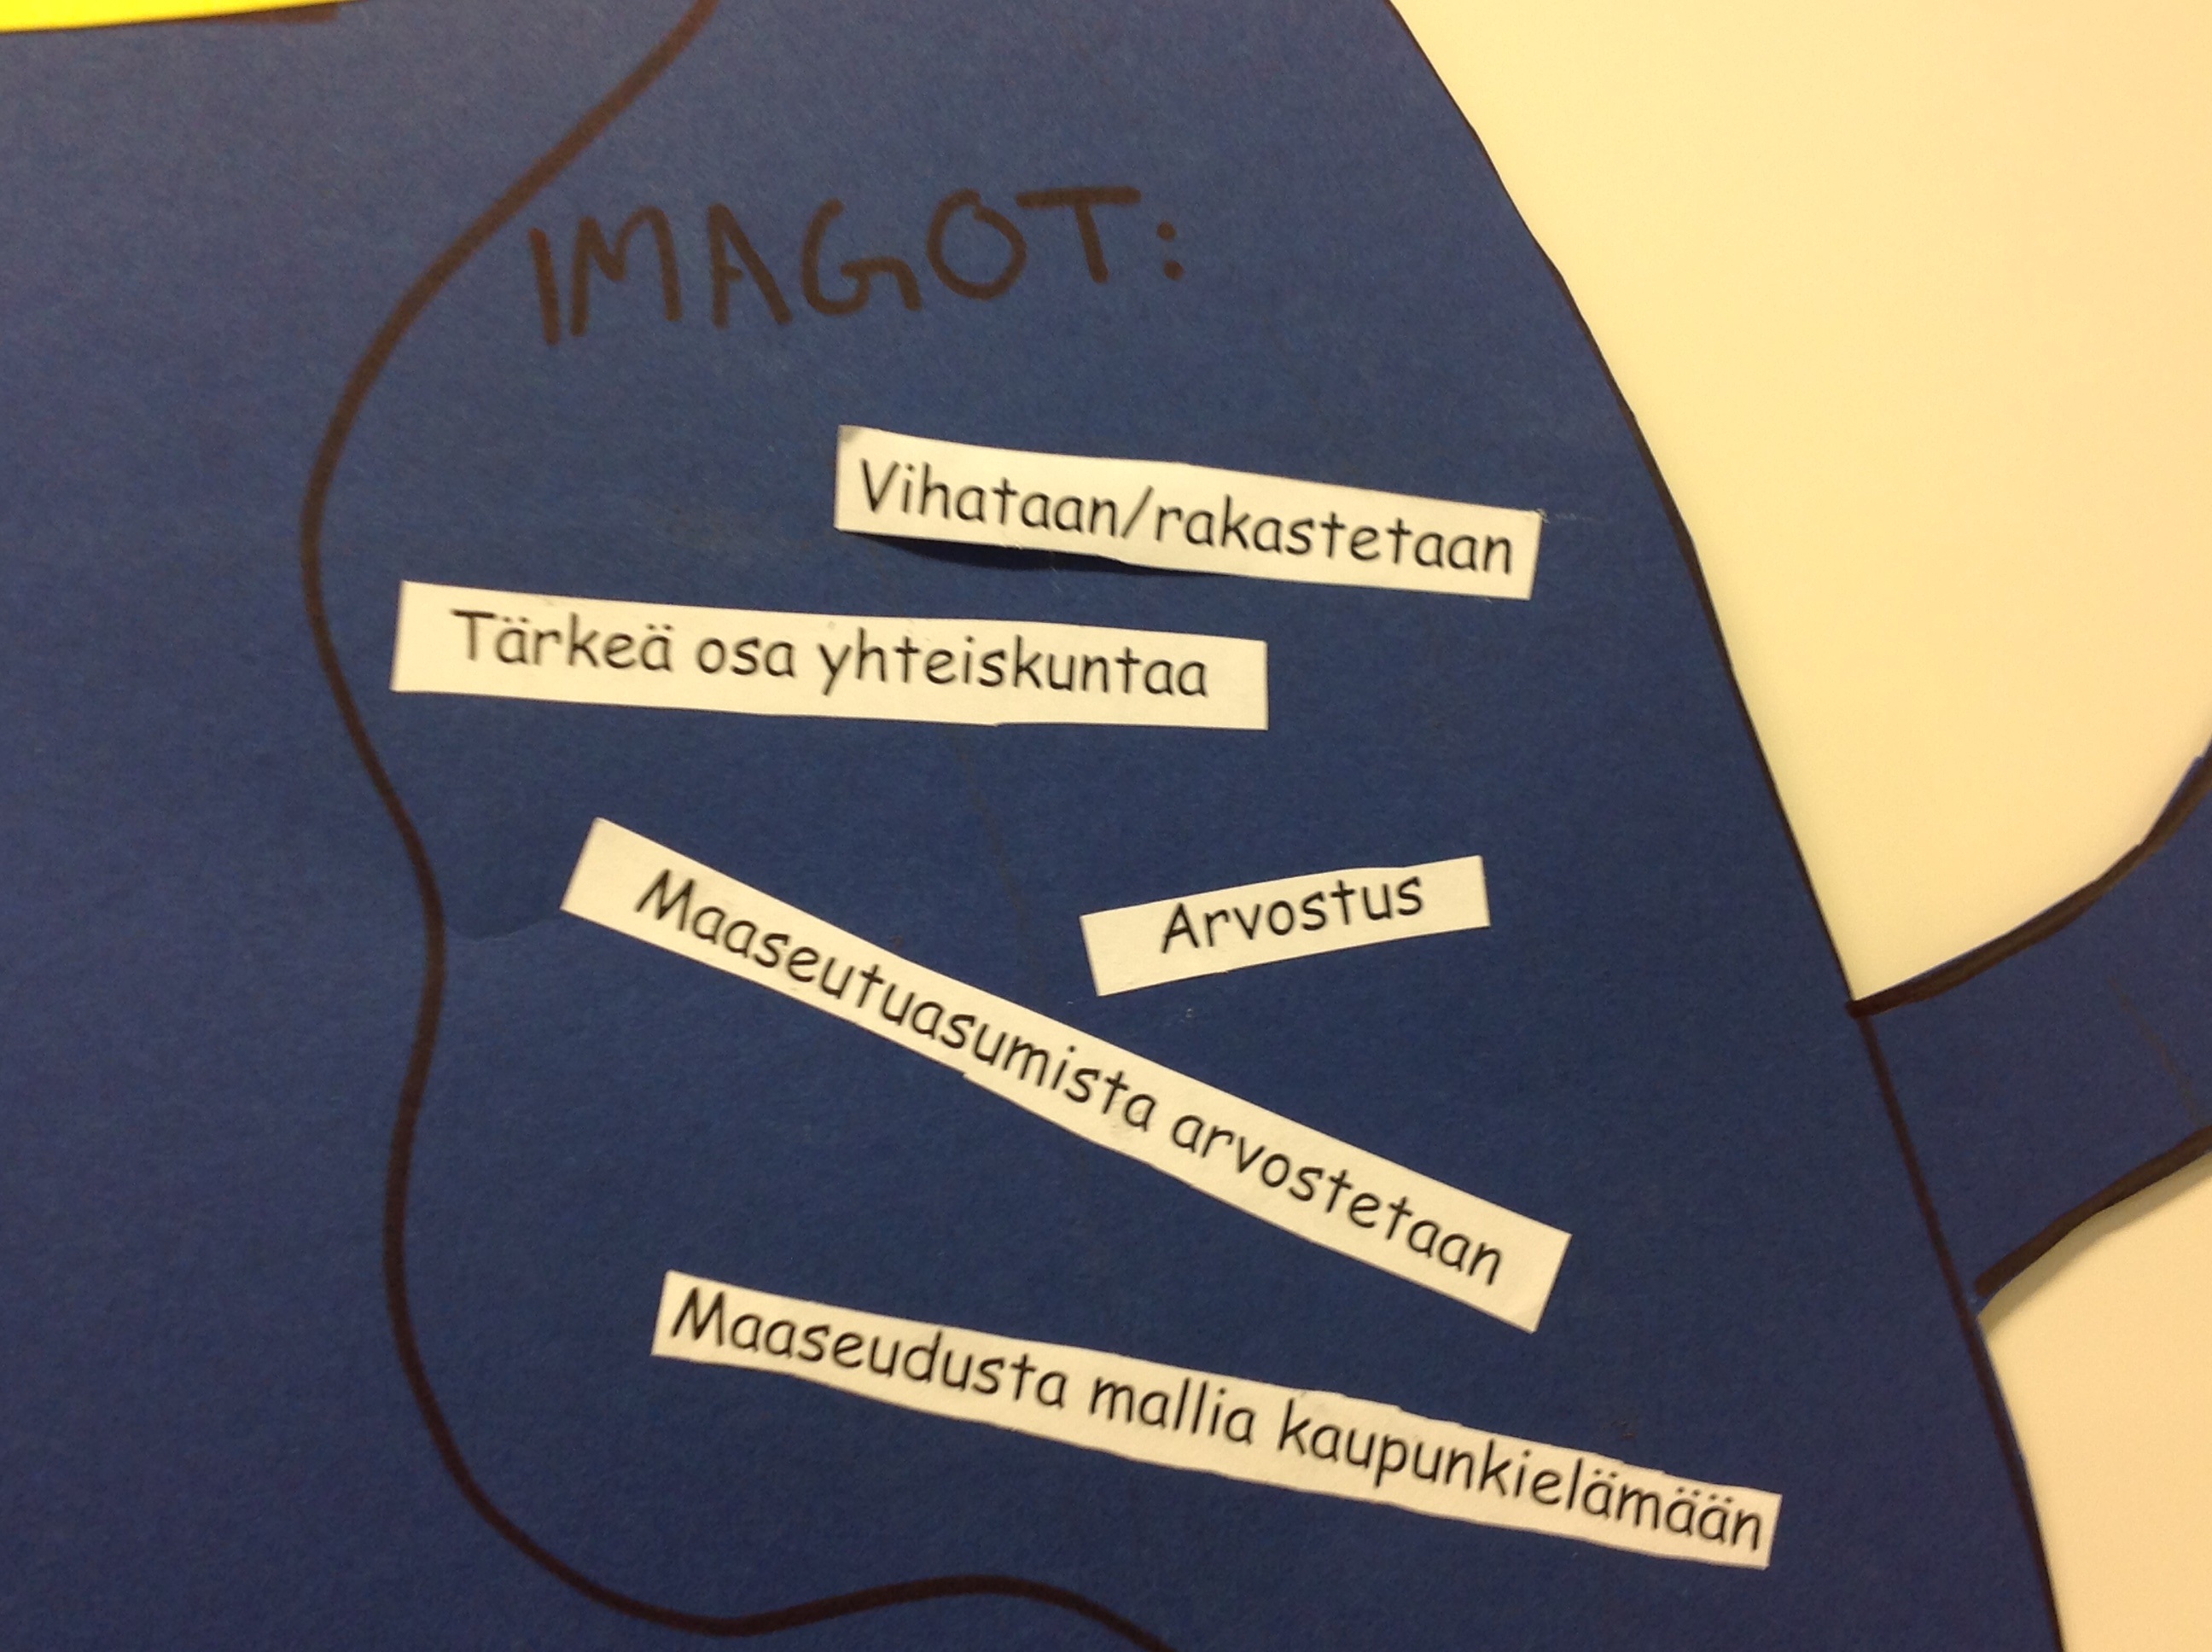 IMAGOT:
Vihataan/rakastetaan
Tärkeä osa yhteiskuntaa
Arvostus
Maaseutuasumista arvostetaan
Maaseudusta mallia kaupunkielämään